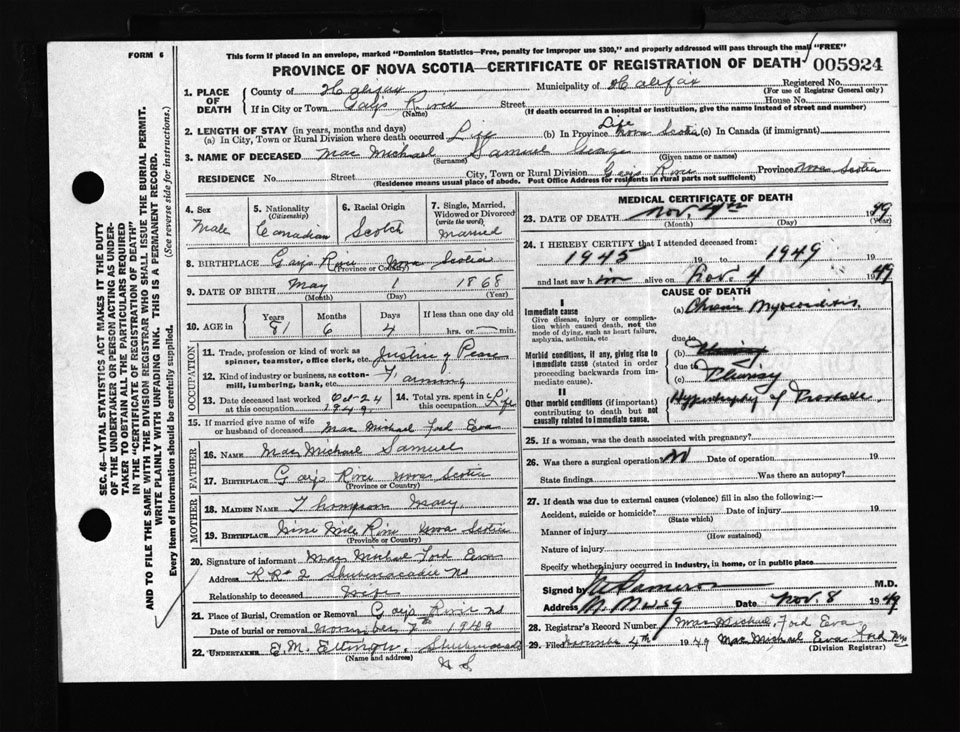 FORM 6
This form if placed in an envelope, marked "Dominion Statistics—Free, penalty for improper use $300," and properly addressed will pass through the mail "FREE"
PROVINCE OF NOVA SCOTIA—CERTIFICATE OF REGISTRATION OF DEATH 005924
SEC. 46—VITAL STATISTICS ACT MAKES IT THE DUTY
OF THE UNDERTAKER OR PERSON ACTING AS UNDER-
TAKER TO OBTAIN ALL THE PARTICULARS REQUIRED
IN THE "CERTIFICATE OF REGISTRATION OF DEATH"
AND TO FILE THE SAME WITH THE DIVISION REGISTRAR WHO SHALL ISSUE THE BURIAL PERMIT.
WRITE PLAINLY WITH UNFADING INK. THIS IS A PERMANENT RECORD.
Every item of Information should be carefully supplied. (See reverse side for instructions.)
1. PLACE OF DEATH
County of Halifax Municipality of Halifax Registered No.
(For use of Registrar General only)
If in City or Town Gays River Street House No.
(Name) (If death occurred in a hospital or institution, give the name instead of street and number)
2. LENGTH OF STAY (in years, months and days)
(a) In City, Town or Rural Division where death occurred Life (b) In Province Life Nova Scotia (c) In Canada (if immigrant)
3. NAME OF DECEASED Mac Michael Samuel George
(Surname) (Given name or names)
RESIDENCE No. Street City, Town or Rural Division Gays River Province Nova Scotia
(Residence means usual place of abode. Post Office Address for residents in rural parts not sufficient)
4. Sex Male
5. Nationality (Citizenship) Canadian
6. Racial Origin Scotch
7. Single, Married, Widowed or Divorced (write the word) Married
8. BIRTHPLACE Gays River Nova Scotia
(Province or Country)
9. DATE OF BIRTH May 1 1868
(Month) (Day) (Year)
10. AGE in Years 81 Months 6 Days 4 If less than one day old hrs. or min.
OCCUPATION
11. Trade, profession or kind of work as spinner, teamster, office clerk, etc. Justice of Peace
12. Kind of industry or business, as cotton-mill, lumbering, bank, etc. Farming
13. Date deceased last worked at this occupation Oct-24 1949
14. Total yrs. spent in this occupation Life
15. If married give name of wife or husband of deceased Mac Michael Ford Eva
FATHER
16. NAME Mac Michael Samuel
17. BIRTHPLACE Gays River Nova Scotia
(Province or Country)
MOTHER
18. MAIDEN NAME Thompson Mary
19. BIRTHPLACE Nine Mile River Nova Scotia
(Province or Country)
20. Signature of informant Mac Michael Ford Eva
Address RR 2 Shubenacadie NS
Relationship to deceased Wife
21. Place of Burial, Cremation or Removal Gays River NS
Date of burial or removal November 7th 1949
22. UNDERTAKER Shubenacadie
(Name and address) N S
MEDICAL CERTIFICATE OF DEATH
23. DATE OF DEATH Nov. 4th 1949
(Month) (Day) (Year)
24. I HEREBY CERTIFY that I attended deceased from:
1945 19 to 1949 19
and last saw h im alive on Nov. 4 1949
CAUSE OF DEATH
I
Immediate cause
Give disease, injury or complication which caused death, not the mode of dying, such as heart failure, asphyxia, asthenia, etc
(a) Chronic Myocarditis
due to
Morbid conditions, if any, giving rise to immediate cause (stated in order proceeding backwards from immediate cause).
(b) Pleurisy
due to
(c) Pleurisy
II
Other morbid conditions (if important) contributing to death but not causally related to immediate cause.
Hypertrophy of Prostate
25. If a woman, was the death associated with pregnancy?
26. Was there a surgical operation? no Date of operation 19
State findings Was there an autopsy?
27. If death was due to external causes (violence) fill in also the following:—
Accident, suicide or homicide? Date of injury 19
(State which)
Manner of injury
(How sustained)
Nature of injury
Specify whether injury occurred in Industry, in home, or in public place
Signed by Cameron M.D.
Address Date Nov. 8 1949
28. Registrar's Record Number Mac Michael, Ford Eva
29. Filed 4th 1949 Mac Michael Eva Ford
(Division Registrar)